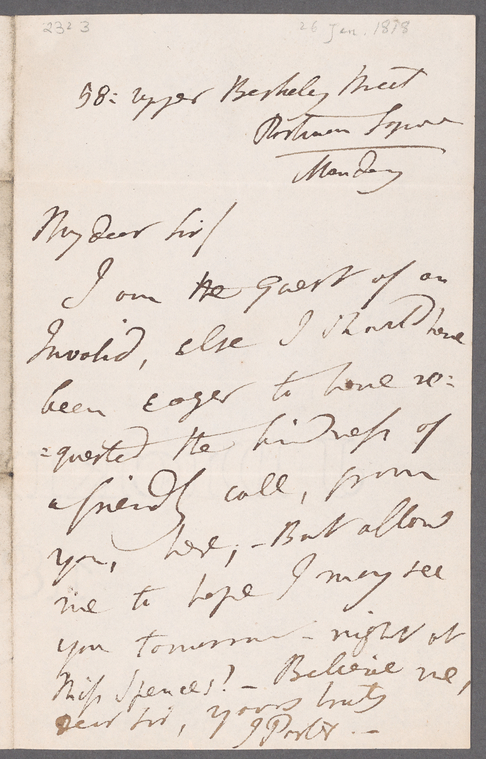 232 3 26 Jan. 1878
58= upper Berkeley Street
Portman Square
Monday
My dear Sir/
I am the Guest of an
Invalid, else I should have
been eager to have re=
=quested the kindness of
a friendly call, from
you, here, - But allow
me to hope I may see
you tomorrow - night at
Miss Spences? - Believe me,
dear Sir, yours truly
J Porter -